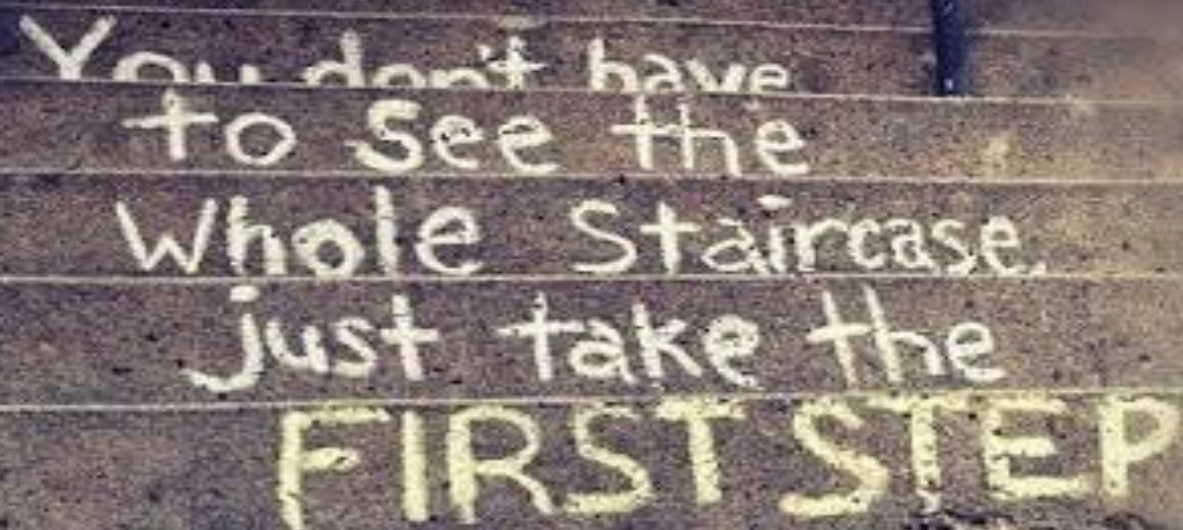 You don't have
to see the
Whole Staircase,
just take the
FIRST STEP